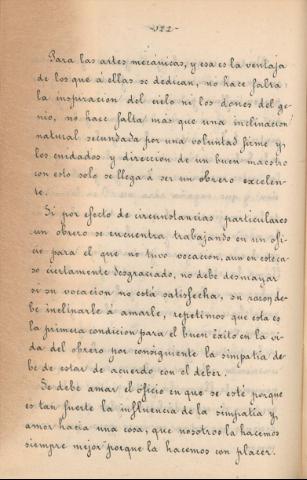 -122-
Para las artes mecánicas, y esa es la ventaja
de los que a ellas se dedican, no hace falta
la inspiracion del cielo ni los dones del ge-
nio, no hace falta más que una inclinacion
natural secundada por una voluntad firme y,
los cuidados y direccion de un buen maestro
con esto solo se llega á ser un obrero excelen-
te.
Si por efecto de circunstancias particulares
un obrero se encuentra trabajando en un ofi-
cio para el que no tuvo vocacion, aun en este ca-
so ciertamente desgraciado, no debe desmayar
si su vocacion no está satisfecha, su razon de-
be inclinarle á amarle, repetimos que esta es
la primera condicion para el buen éxito en la vi-
da del obrero por consiguiente la simpatía de-
be de estar de acuerdo con el deber.
Se debe amar el oficio en que se esté porque
es tan fuerte la influencia de la simpatía y,
amor hacia una cosa, que nosotros la hacemos
siempre mejor porque la hacemos con placer.